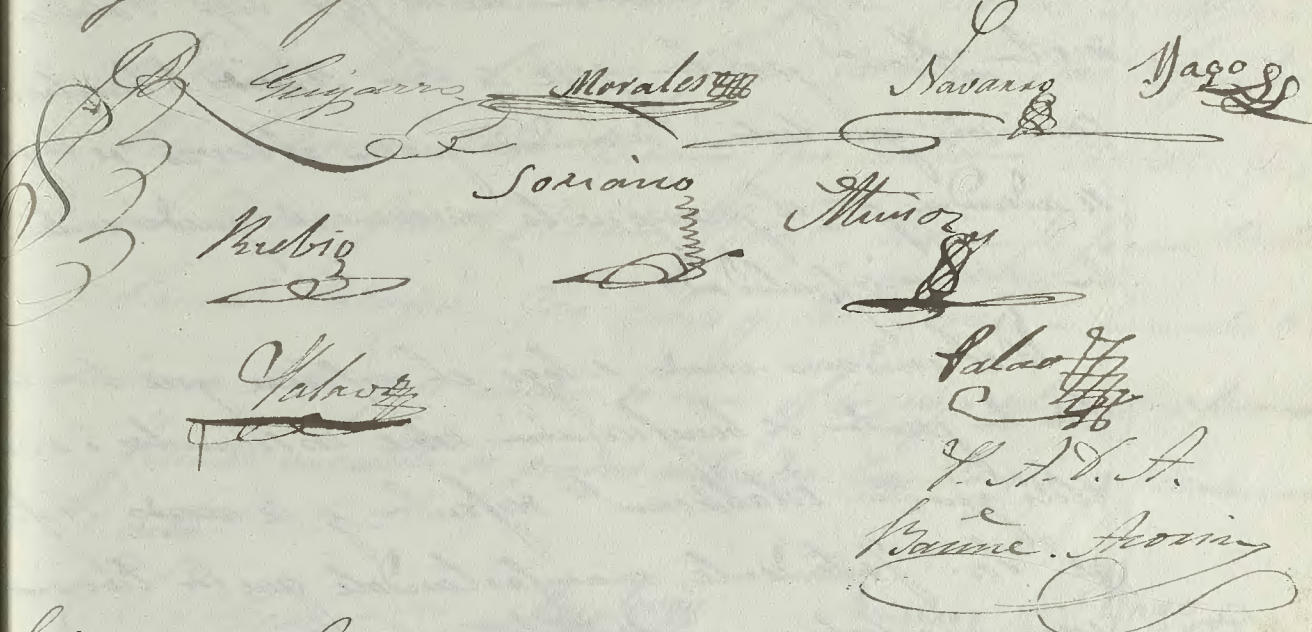 Guijarro Morales Navarro Yago
Rubio Soriano Muñoz
Palao Palao
P. A. D. A.
Bart.me Azorin